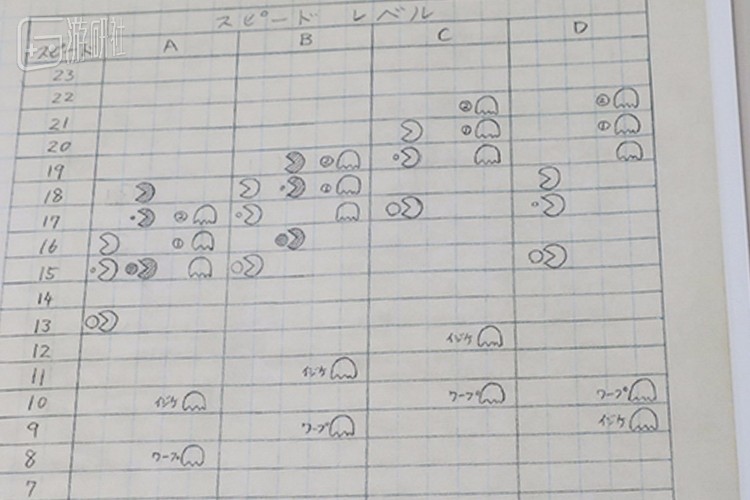 游研社
スピード レベル
スピード A B C D
23
22 ② ②
21 ① ①
20
19 ②
18 ①
17 ②
16 ①
15
14
13
12 イジケ
11 イジケ
10 イジケ ワープ ワープ
9 ワープ イジケ
8 ワープ
7